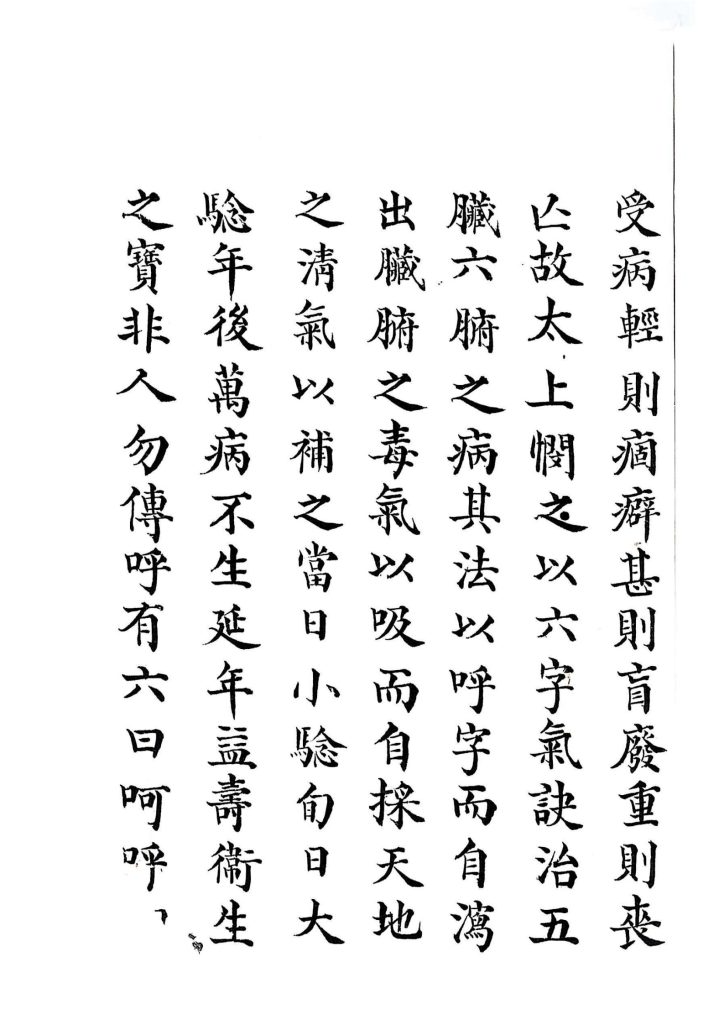 受病輕則痼癖甚則盲廢重則喪
亾故太上憫之以六字氣訣治五
臟六腑之病其法以呼字而自瀉
出臟腑之毒氣以吸而自採天地
之淸氣以補之當日小騐旬日大
騐年後萬病不生延年益壽衞生
之寶非人勿傳呼有六曰呵呼